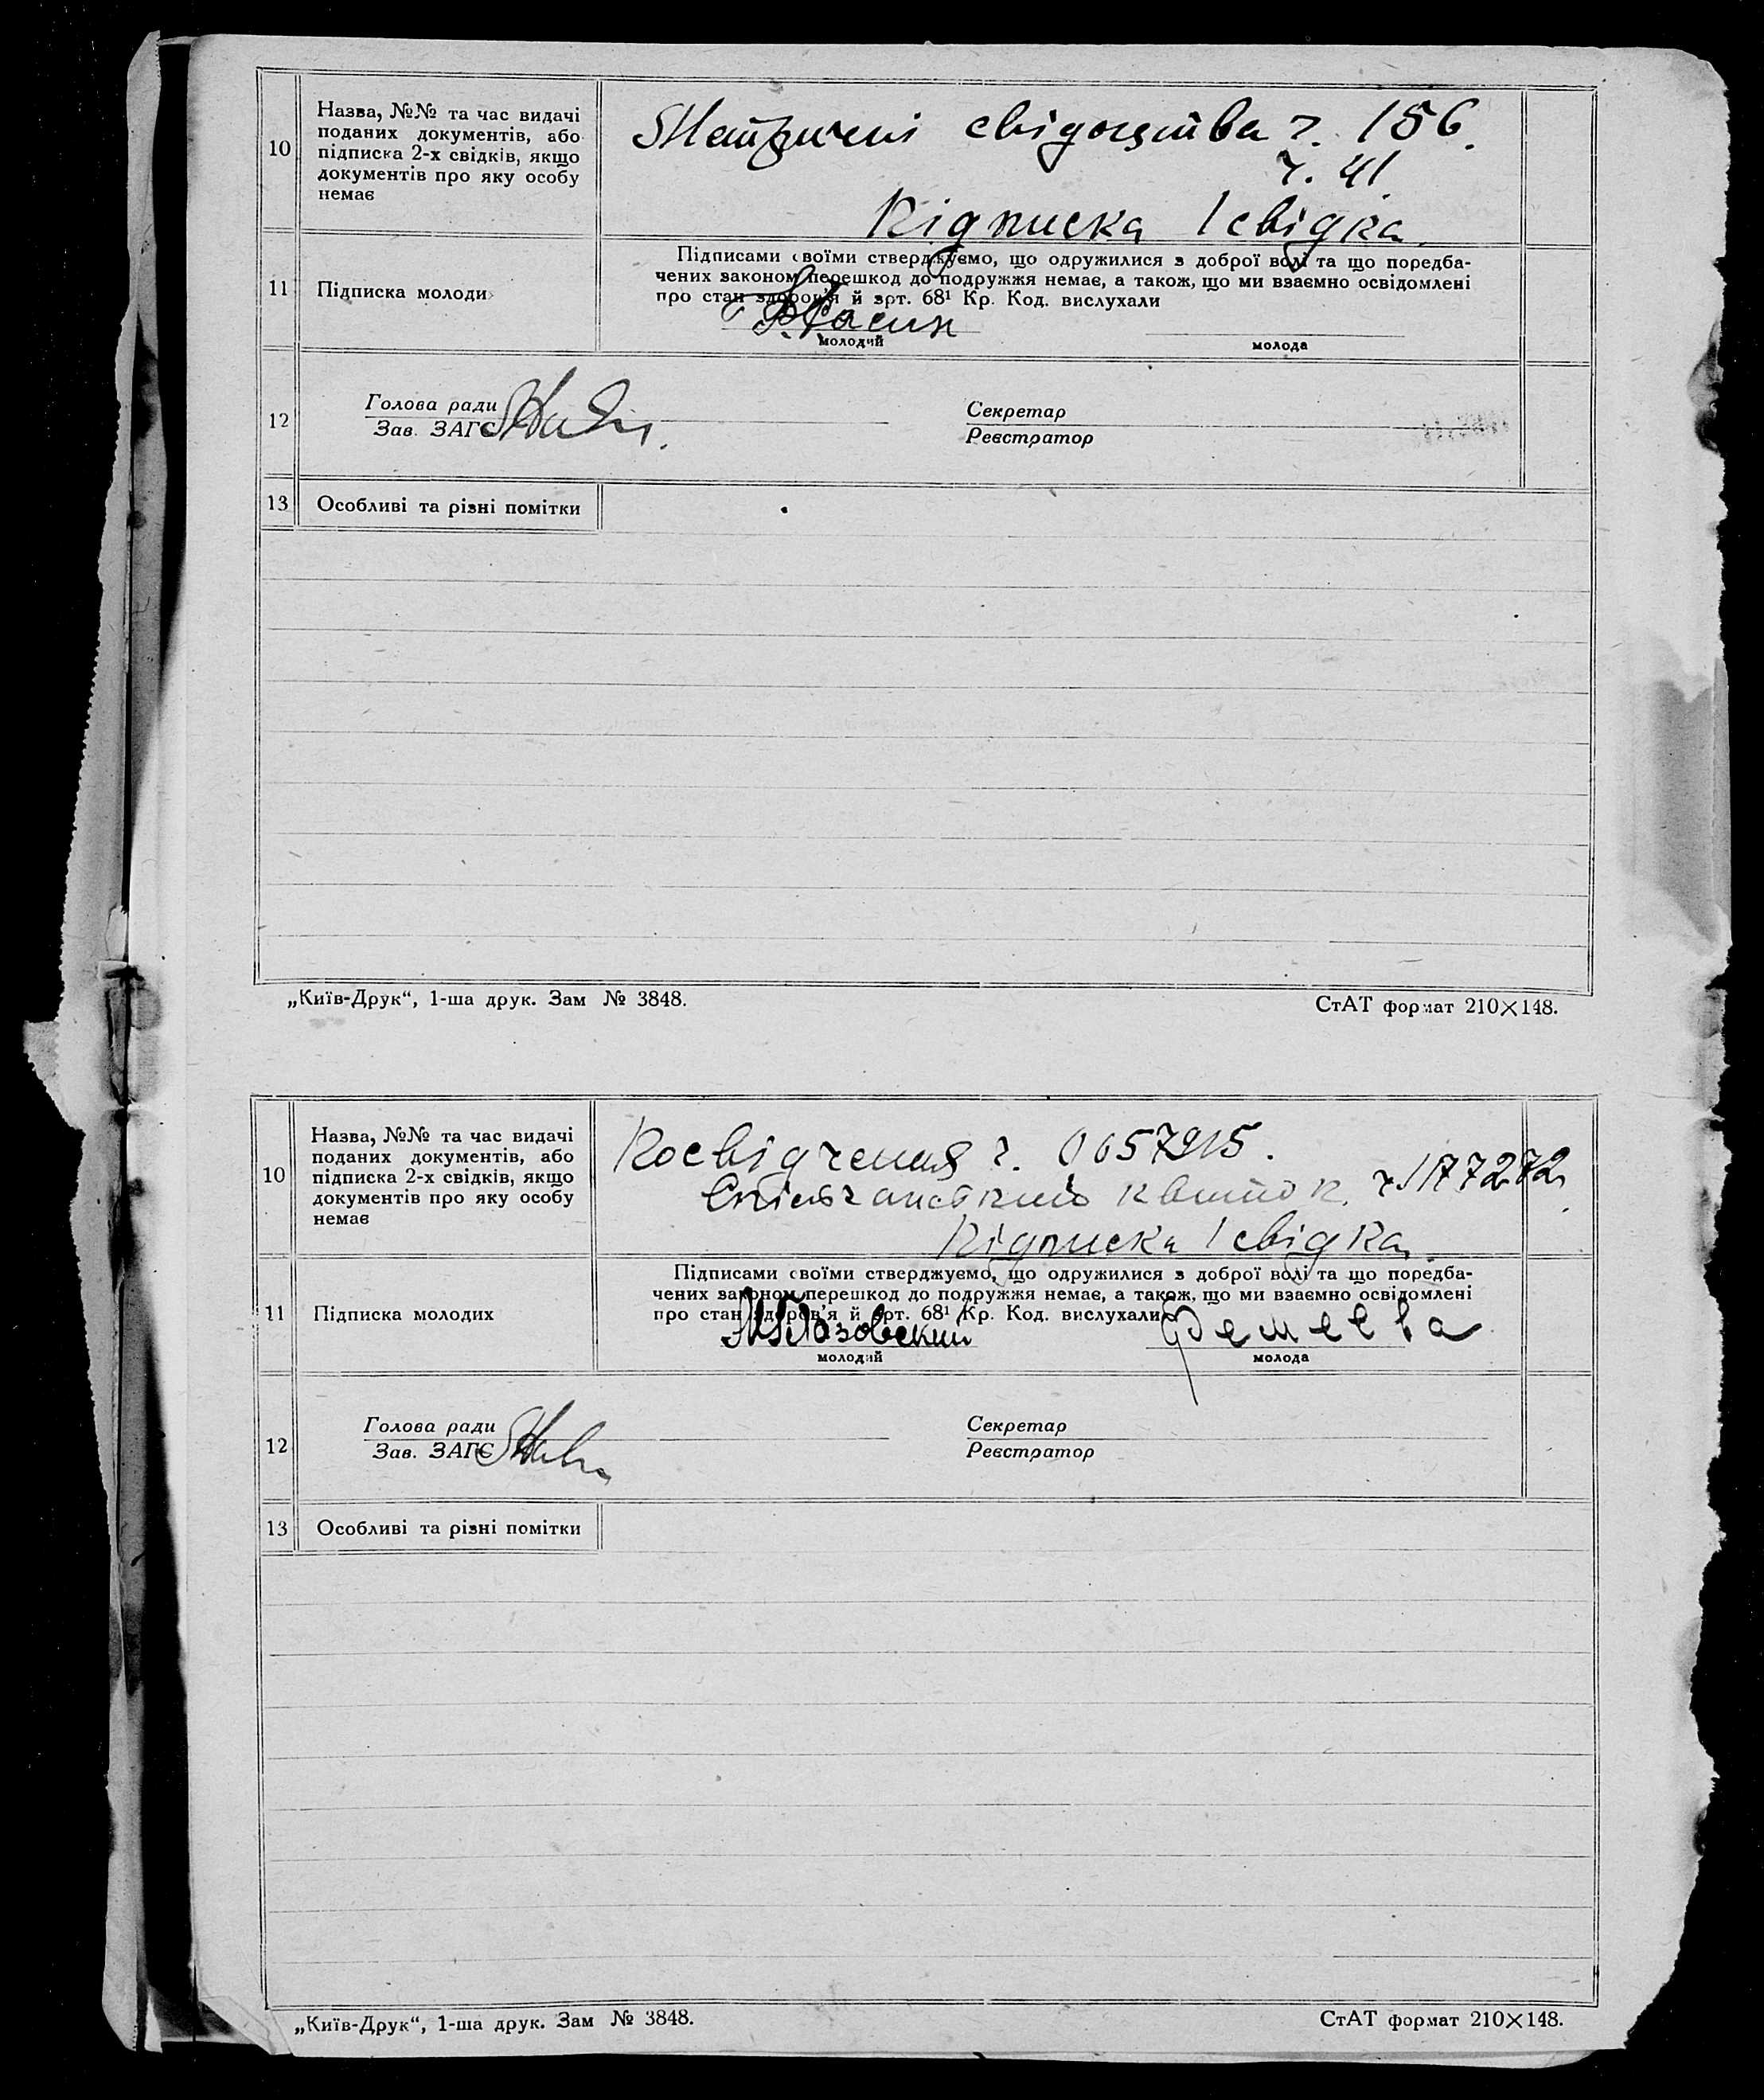 10
Назва, №№ та час видачі
поданих документів, або
підписка 2-х свідків, якщо
документів про яку особу
немає
Метричні свідоцтва ч. 156.
ч. 41.
Підписка 1 свідка.
11
Підписка молоди
Підписами своїми стверджуємо, що одружилися з доброї волі та що поредба-
чених законом перешкод до подружжя немає, а також, що ми взаємно освідомлені
про стан здоров'я й арт. 68¹ Кр. Код. вислухали
молодий
молода
12
Голова ради
Зав. ЗАГС
Секретар
Реєстратор
13
Особливі та різні помітки
„Київ-Друк“, 1-ша друк. Зам № 3848.
СтАТ формат 210×148.
10
Назва, №№ та час видачі
поданих документів, або
підписка 2-х свідків, якщо
документів про яку особу
немає
Посвідчення ч.
Спілчанський квиток.
Підписка 1 свідка.
11
Підписка молодих
Підписами своїми стверджуємо, що одружилися з доброї волі та що поредба-
чених законом перешкод до подружжя немає, а також, що ми взаємно освідомлені
про стан здоров'я й арт. 68¹ Кр. Код. вислухали
молодий
молода
12
Голова ради
Зав. ЗАГС
Секретар
Реєстратор
13
Особливі та різні помітки
„Київ-Друк“, 1-ша друк. Зам № 3848.
СтАТ формат 210×148.